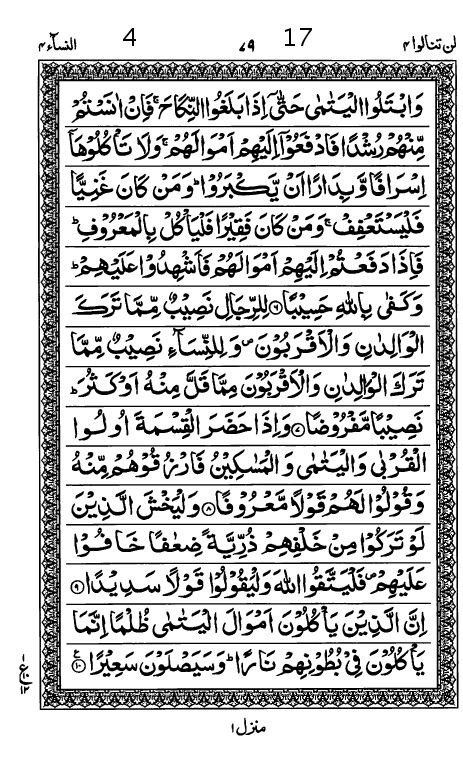 لن تنالوا ۴ 17 ۷۹ 4 النسآء ۴
وَابْتَلُوا الْيَتٰمٰى حَتّٰۤى اِذَا بَلَغُوا النِّكَاحَ ۚ فَاِنْ اٰنَسْتُمْ
مِّنْهُمْ رُشْدًا فَادْفَعُوْۤا اِلَيْهِمْ اَمْوَالَهُمْ ۚ وَلَا تَاْكُلُوْهَاۤ
اِسْرَافًا وَّبِدَارًا اَنْ يَّكْبَرُوْا ؕ وَمَنْ كَانَ غَنِيًّا
فَلْيَسْتَعْفِفْ ۚ وَمَنْ كَانَ فَقِيْرًا فَلْيَاْكُلْ بِالْمَعْرُوْفِ ؕ
فَاِذَا دَفَعْتُمْ اِلَيْهِمْ اَمْوَالَهُمْ فَاَشْهِدُوْا عَلَيْهِمْ ؕ
وَكَفٰى بِاللّٰهِ حَسِيْبًا ۝۶ لِلرِّجَالِ نَصِيْبٌ مِّمَّا تَرَكَ
الْوَالِدٰنِ وَالْاَقْرَبُوْنَ ۪ وَلِلنِّسَآءِ نَصِيْبٌ مِّمَّا
تَرَكَ الْوَالِدٰنِ وَالْاَقْرَبُوْنَ مِمَّا قَلَّ مِنْهُ اَوْ كَثُرَ ؕ
نَصِيْبًا مَّفْرُوْضًا ۝۷ وَاِذَا حَضَرَ الْقِسْمَةَ اُولُوا
الْقُرْبٰى وَالْيَتٰمٰى وَالْمَسٰكِيْنُ فَارْزُقُوْهُمْ مِّنْهُ
وَقُوْلُوْا لَهُمْ قَوْلًا مَّعْرُوْفًا ۝۸ وَلْيَخْشَ الَّذِيْنَ
لَوْ تَرَكُوْا مِنْ خَلْفِهِمْ ذُرِّيَّةً ضِعٰفًا خَافُوْا
عَلَيْهِمْ ۪ فَلْيَتَّقُوا اللّٰهَ وَلْيَقُوْلُوْا قَوْلًا سَدِيْدًا ۝۹
اِنَّ الَّذِيْنَ يَاْكُلُوْنَ اَمْوَالَ الْيَتٰمٰى ظُلْمًا اِنَّمَا
يَاْكُلُوْنَ فِيْ بُطُوْنِهِمْ نَارًا ؕ وَسَيَصْلَوْنَ سَعِيْرًا ۝۱۰
ع
۱۲
منزل ۱